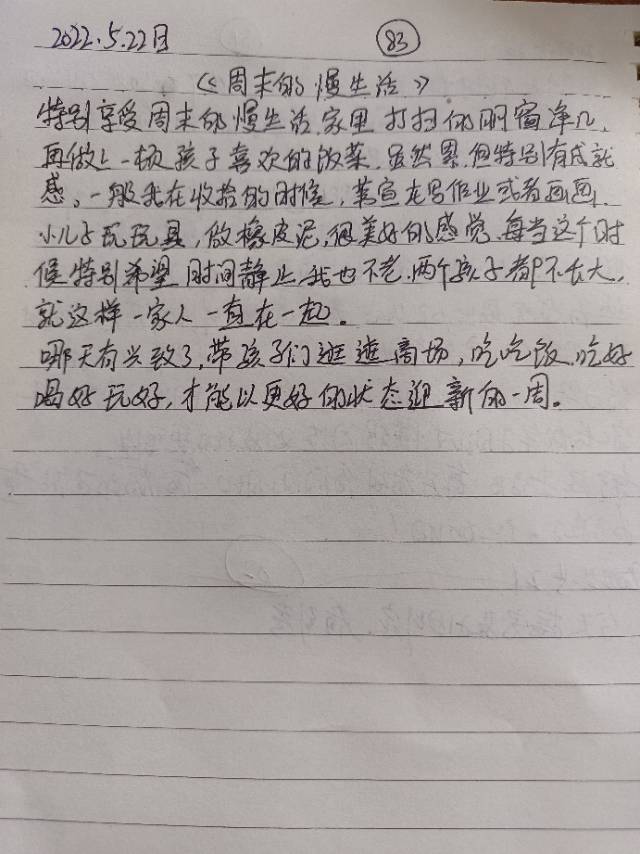 2022.5.22日
83
《周末的慢生活》
特别享受周末的慢生活.家里打扫的明窗净几,
再做上一顿孩子喜欢的饭菜.虽然累.但特别有成就
感。一般我在收拾的时候,萱龙写作业或者画画,
小儿子玩玩具,做橡皮泥,很美好的感觉.每当这个时
候特别希望时间静止.我也不老.两个孩子都不长大,
就这样一家人一直在一起。
哪天有兴致了,带孩子们逛逛商场,吃吃饭.吃好
喝好玩好,才能以更好的状态迎新的一周。